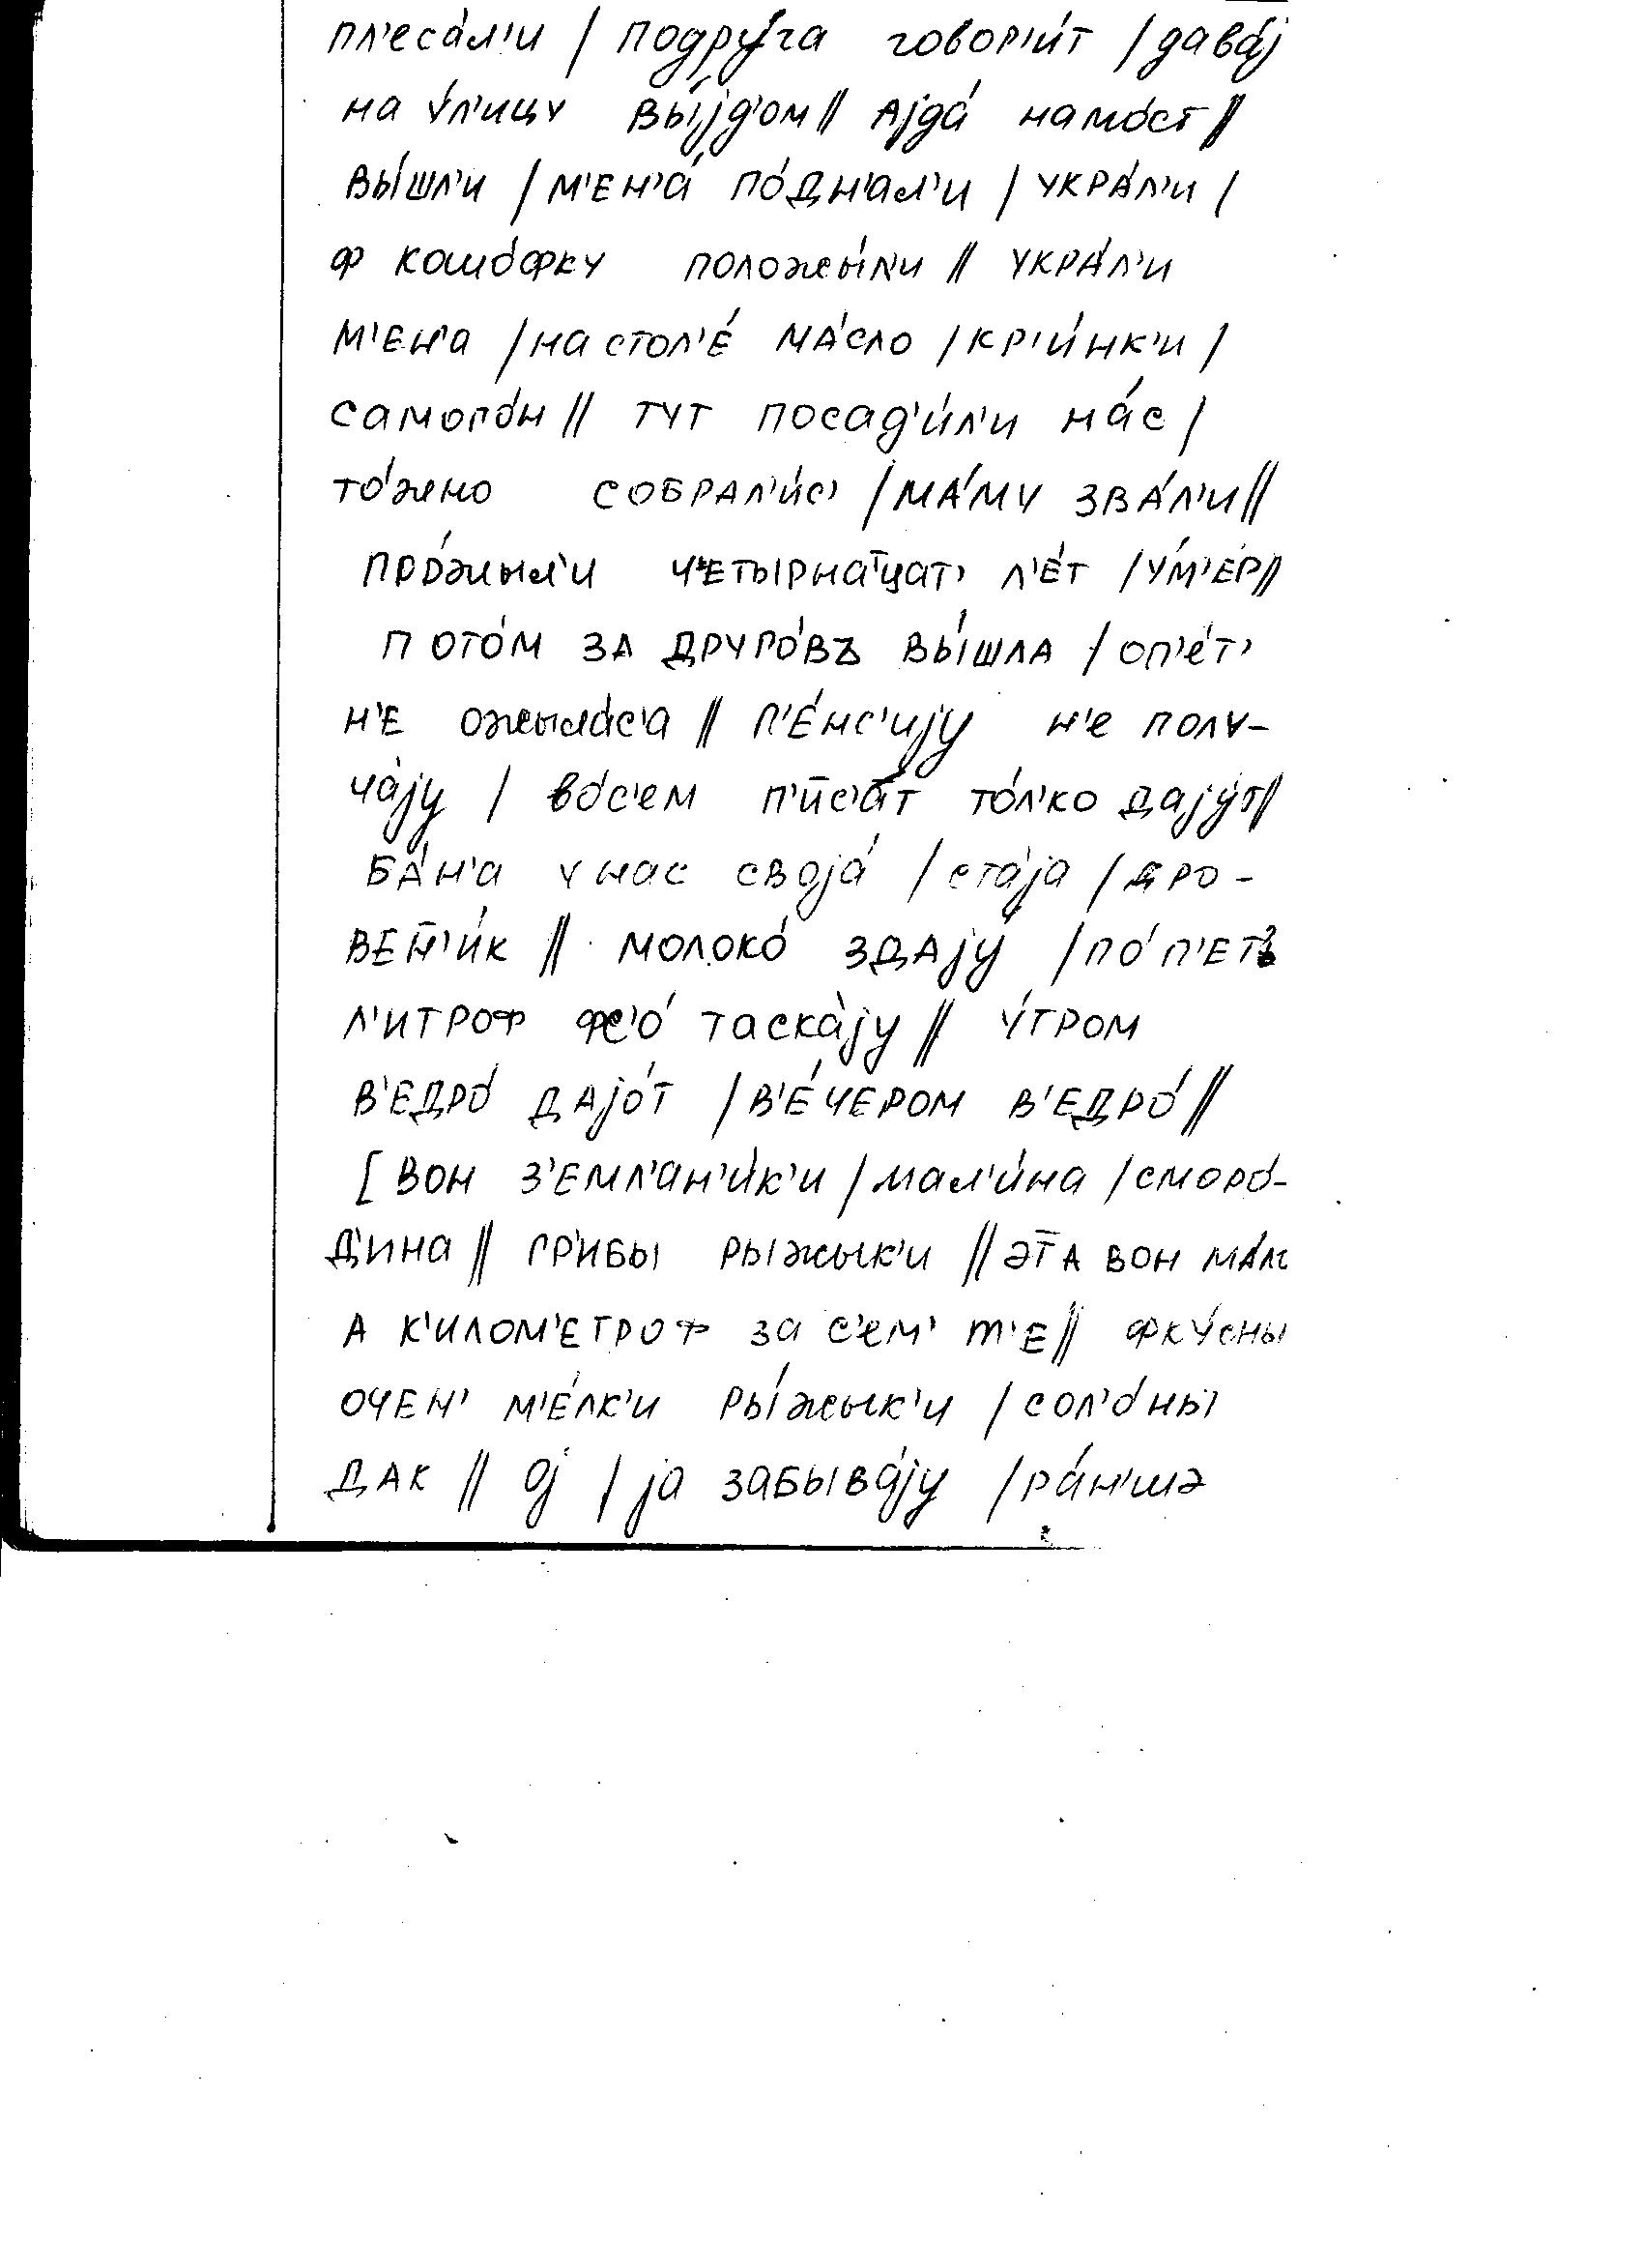 пл'еса́л'и / подру́га говор'и́т / дава́j
на у́л'ицу вы́jд'ом // аjда́ на мо́ст //
вы́шл'и / м'ен'а́ по́дн'ал'и / укра́л'и /
ф кошо́фку положы́л'и // укра́л'и
м'ен'а / на стол'е́ ма́сло / кр'и́нк'и /
самого́н // тут посад'и́л'и на́с /
то́жно собрал'и́с' / ма́му зва́л'и //
про́жыл'и ч'еты́рнац̄ат' л'е́т / у́м'ер //
пото́м за друго́въ вы́шла / оп'е́т'
н'е ожыла́с'а // п'е́нс'иjу н'е полу-
ча́jу / во́с'ем п'ис'а́т то́л'ко даjу́т //
ба́н'а у нас своjа́ / ста́jа / дро-
вен̄'и́к // молоко́ здаjу́ / по́ п'ет'
л'итроф фс'о́ таска́jу // у́тром
в'едро́ даjо́т / в'е́чером в'едро́ //
[ вон з'емл'ан'и́к'и / мал'и́на / сморо́-
д'ина // гр'ибы рыжык'и // эт̄а вон ма́л
а к'илом'етроф за с'ем' т'е // фку́сны
очен' м'е́лк'и ры́жык'и / сол'о́ны
дак // оj / jа забыва́jу / ра́н'шэ